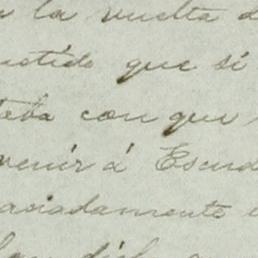 a la vuelta d
metido que si
teba con que
venir á Escud
asiadamente